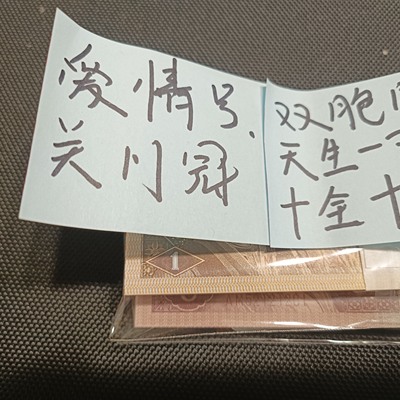 爱情号.
关门冠
双胞
天生一
十全十
1